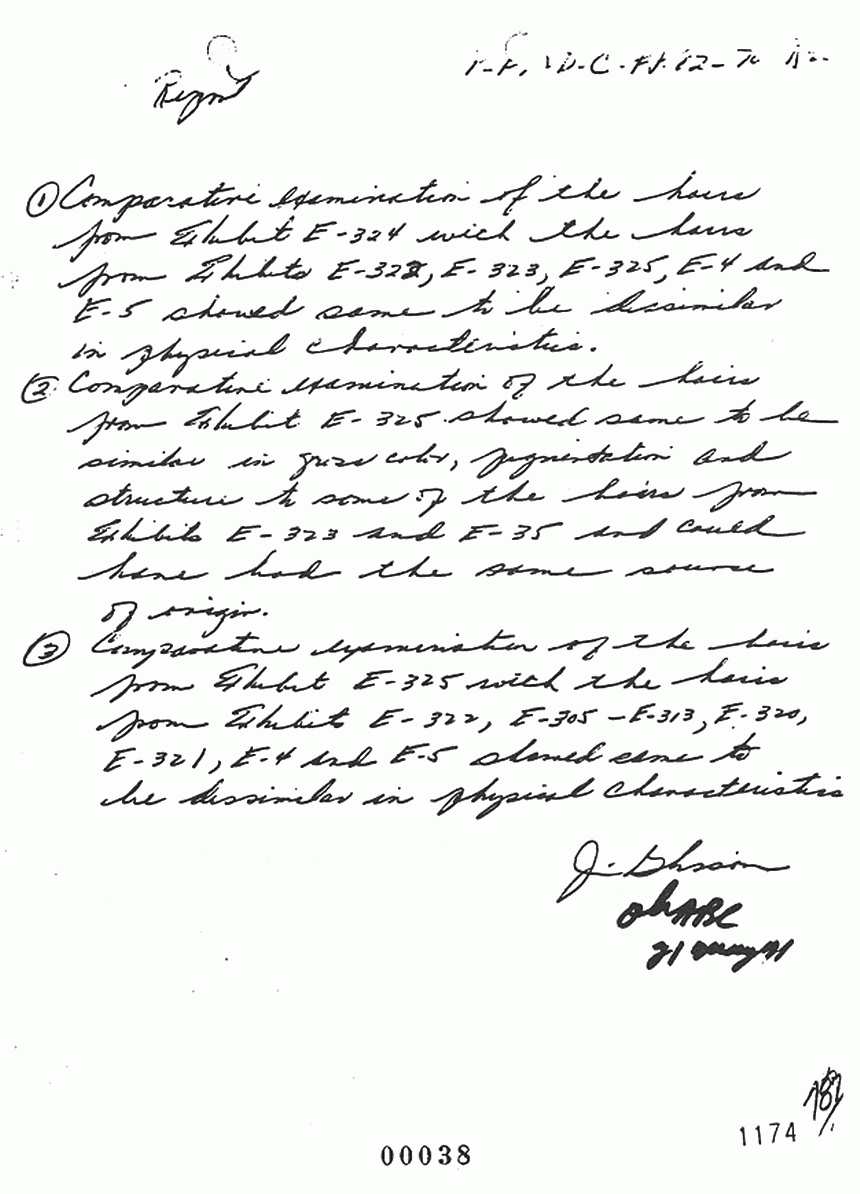 Report
①Comparative examination of the hairs
from Exhibit E-324 with the hairs
from Exhibits E-322, E-323, E-325, E-4 and
E-5 showed same to be dissimilar
in physical characteristics.
② Comparative examination of the hairs
from Exhibit E-325 showed same to be
similar in gross color, pigmentation and
structure to some of the hairs from
Exhibits E-323 and E-35 and could
have had the same source
of origin.
③ Comparative examination of the hairs
from Exhibit E-325 with the hairs
from Exhibits E-322, E-305-E-313, E-320,
E-321, E-4 and E-5 showed same to
be dissimilar in physical characteristics
OK ABC
21
1174
00038